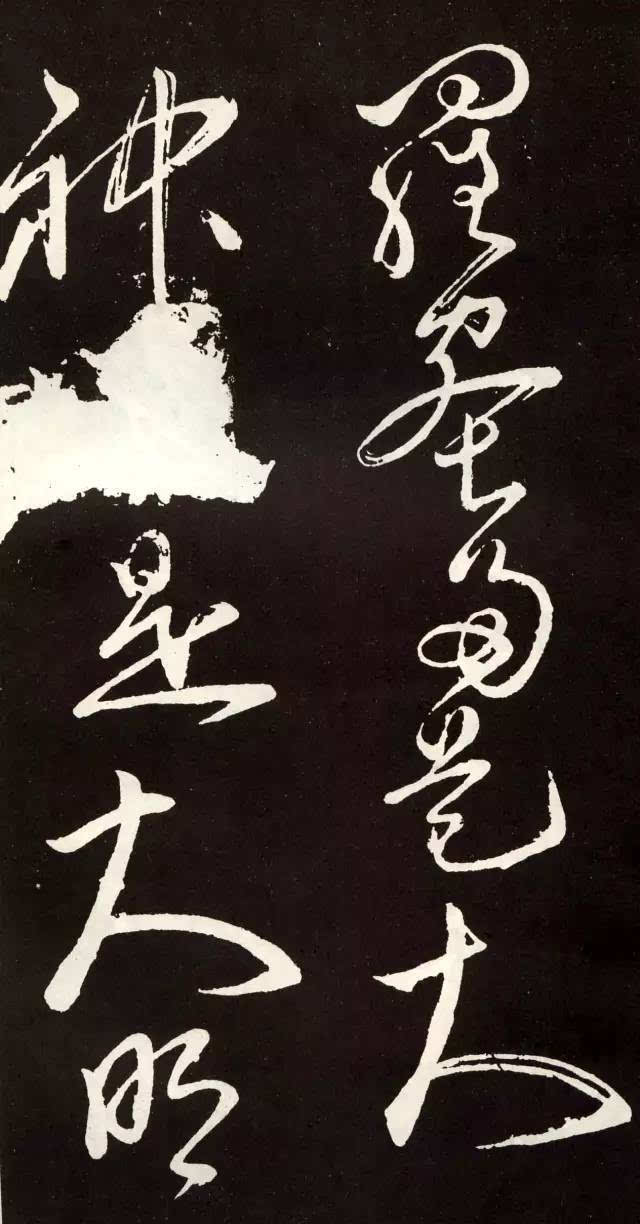 羅蜜多是大
神是大明